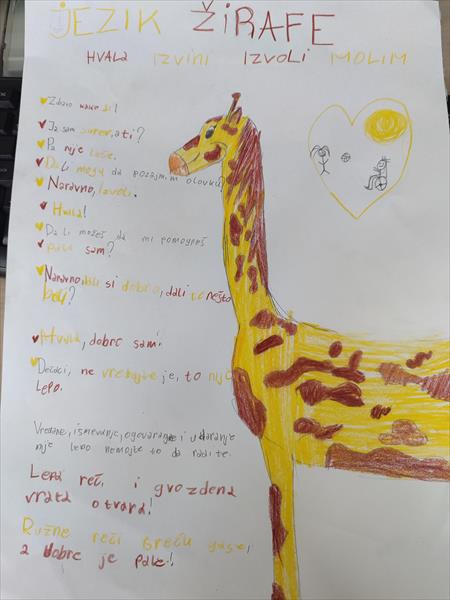 JEZIK ŽIRAFE
HVALA IZVINI IZVOLI MOLIM
Zdravo kako si!
Ja sam super, a ti?
Pa nije loše.
Da li mogu da pozajmim olovku?
Naravno, izvoli.
Hvala!
Da li možeš da mi pomogneš
pala sam?
Naravno, si dobro, da li te nešto
boli?
Hvala, dobro sam!
Dečaci, ne vređajte je, to nije
lepo.
Vređanje, ismevanje, ogovaranje i udaranje
nije lepo nemojte to da radite.
Lepa reč i gvozdena
vrata otvara!
Ružne reči sreću gase,
a dobre je pale!